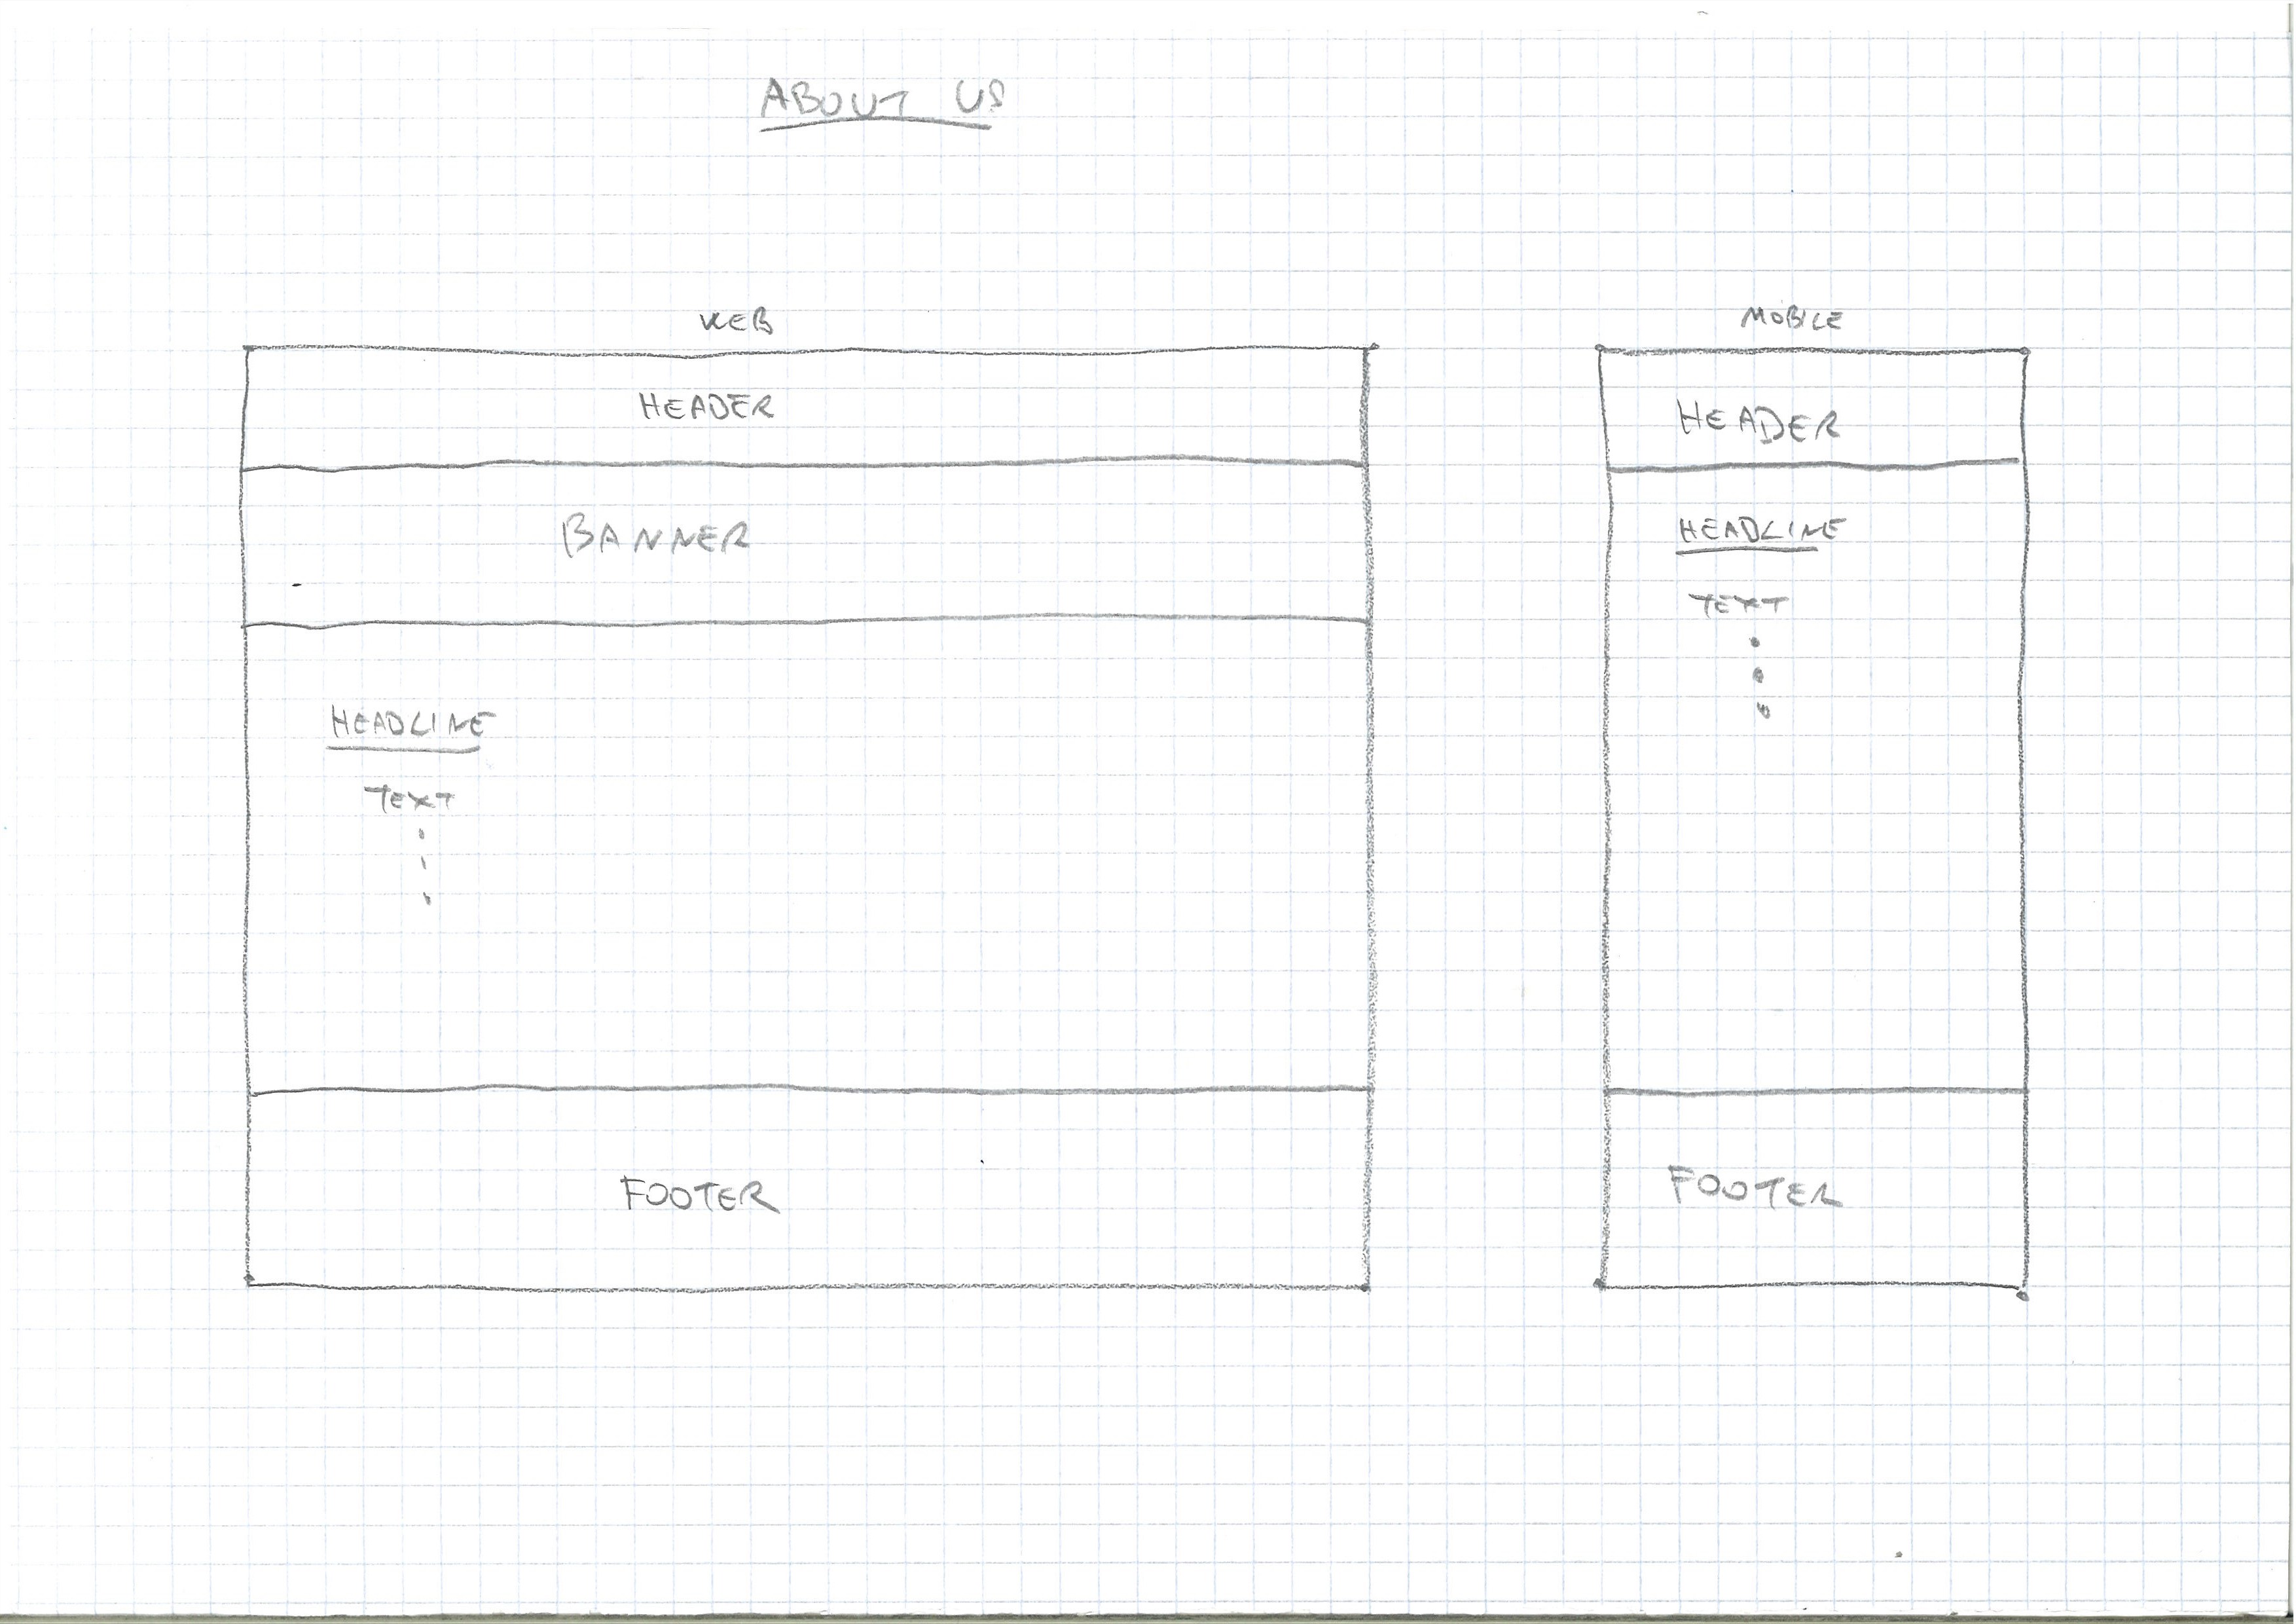 ABOUT US
WEB
HEADER
BANNER
HEADLINE
TEXT
FOOTER
MOBILE
HEADER
HEADLINE
TEXT
FOOTER